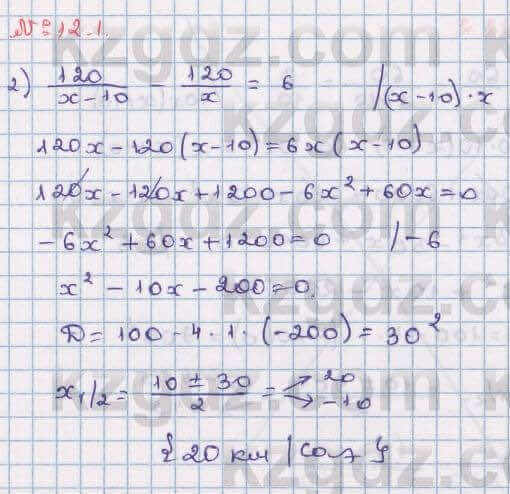 № 12.1.
2) 120/(x-10) - 120/x = 6 |(x-10)·x
120x - 120(x-10) = 6x(x-10)
120x - 120x + 1200 - 6x² + 60x = 0
-6x² + 60x + 1200 = 0 |-6
x² - 10x - 200 = 0.
D = 100 - 4·1·(-200) = 30²
x₁/₂ = (10 ± 30)/2 = → 20 → -10
{20 км/сағ}
kzgdz.com